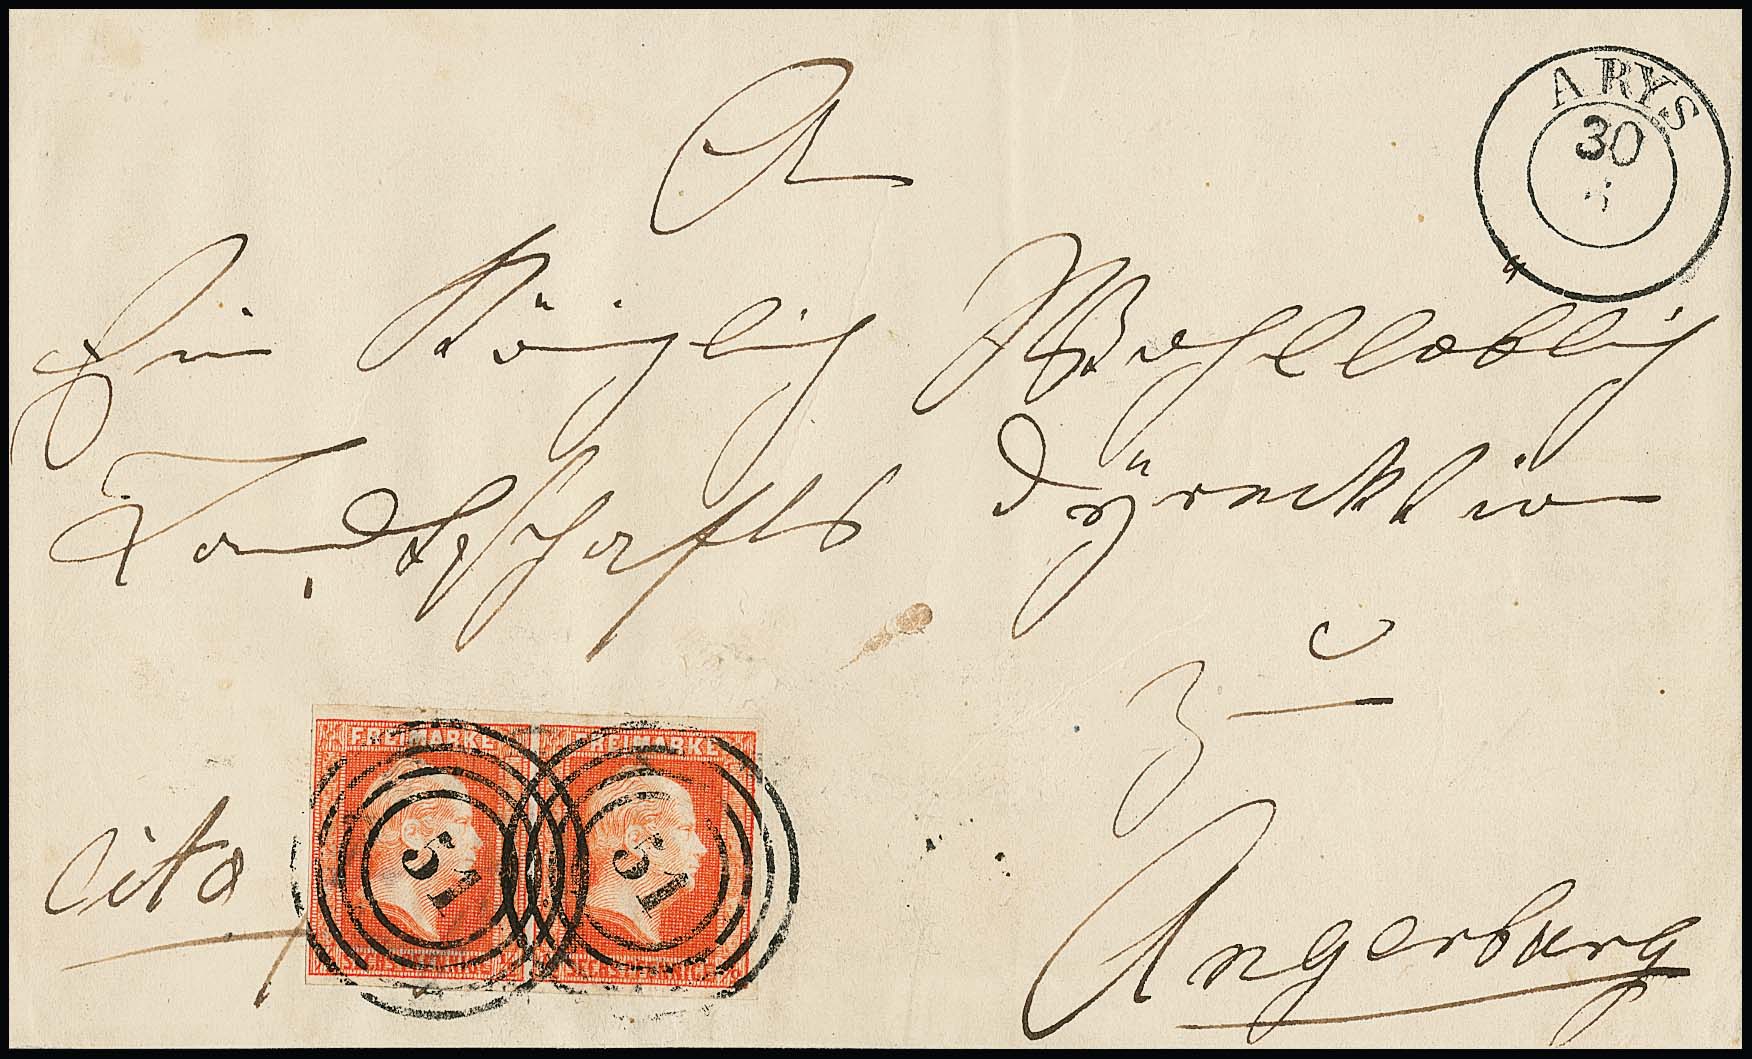 ARYS
30
A
Ein Königlich Wohllöblich
Landschafts Dÿrecktion
zu
cito
Angerburg
FREIMARKE FREIMARKE
51 51